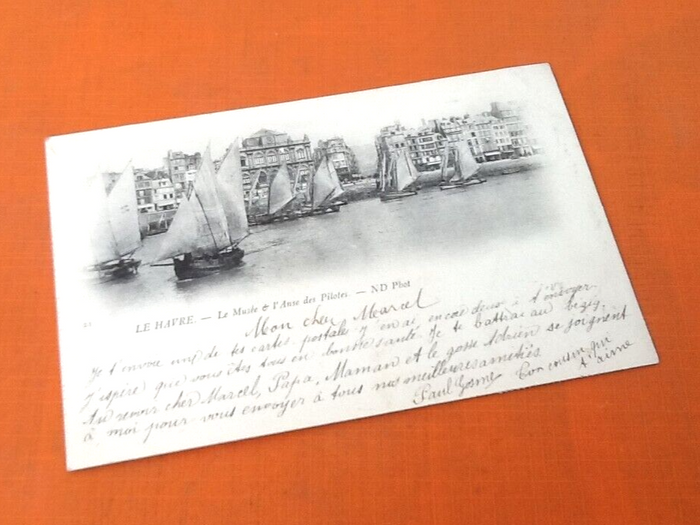 21 LE HAVRE. — Le Musée & l'Anse des Pilotes. — ND Phot
Mon cher Marcel
Je t'envoie une de tes cartes postales j'en ai encore deux à t'envoyer.
J'espère que vous êtes tous en bonne santé. Je te battrai au bezig.
Au revoir cher Marcel, Papa, Maman et le gosse Adrien se joignent
à moi pour vous envoyer à tous nos meilleures amitiés
Paul Ton cousin qui
t'aime